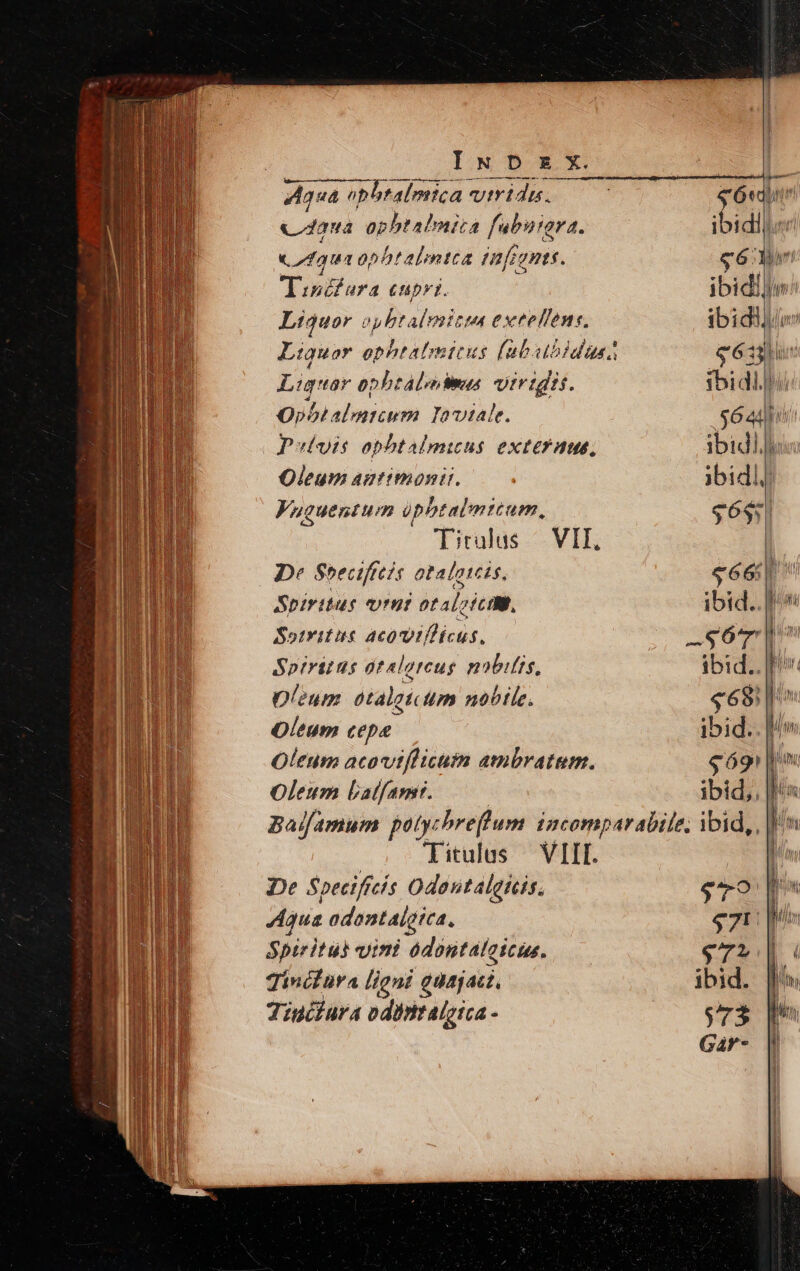 INDEX.
Aqua ophtalmica viridis.
Aqua ophtalmica saburiera. ibid
Aqua ophtalmica insignis.
Tinctura cupri. ibid
Liquor ophtalmicus excellens. ibid
Liquor ophtalmicus subalbidus. 563
Liquor ophtalmicus viridis. ibid.
Ophtalmicum Ioviale. 564
Pulvis ophtalmicus externus, ibid.
Oleum antimonii. ibid.
Vnguentum ophtalmicum, 565
Titulus VII.
De Specificis otalgicis. 566
Spiritus vini otalgicus, ibid..
Spiritus acovisticus. 567
Spiritus otalgicus nobilis, ibid..
Oleum otalgicum nobile. 568
Oleum cepæ ibid..
Oleum acovisticum ambratum. 569
Oleum balsami. ibid,,
Balsamum polychrestum incomparabile. ibid,,
Titulus VIII.
De Specificis Odontalgicis. 570
Aqua odontalgica. 571
Spiritus vini odontalgicus. 572
Tinctura ligni guajaci. ibid.
Tinctura odontalgica - 573
Gar-